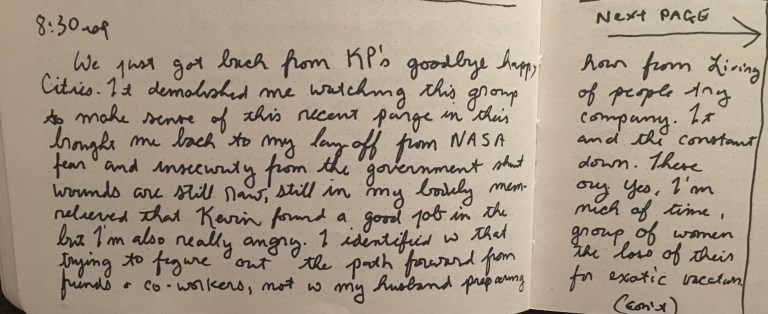 8:30
NEXT PAGE
We just got back from KP's goodbye happy hour from Living
Cities. It demolished me watching this group of people try
to make sense of this recent purge in their company. It
brought me back to my lay off from NASA and the constant
fear and insecurity from the government shut down. These
wounds are still raw, still in my bodily mem- ory. Yes, I'm
relieved that Kevin found a good job in the nick of time,
but I'm also really angry. I identified w that group of women
trying to figure out the path forward from the loss of their
friends & co-workers, not w my husband preparing for exotic vacation
(con't)